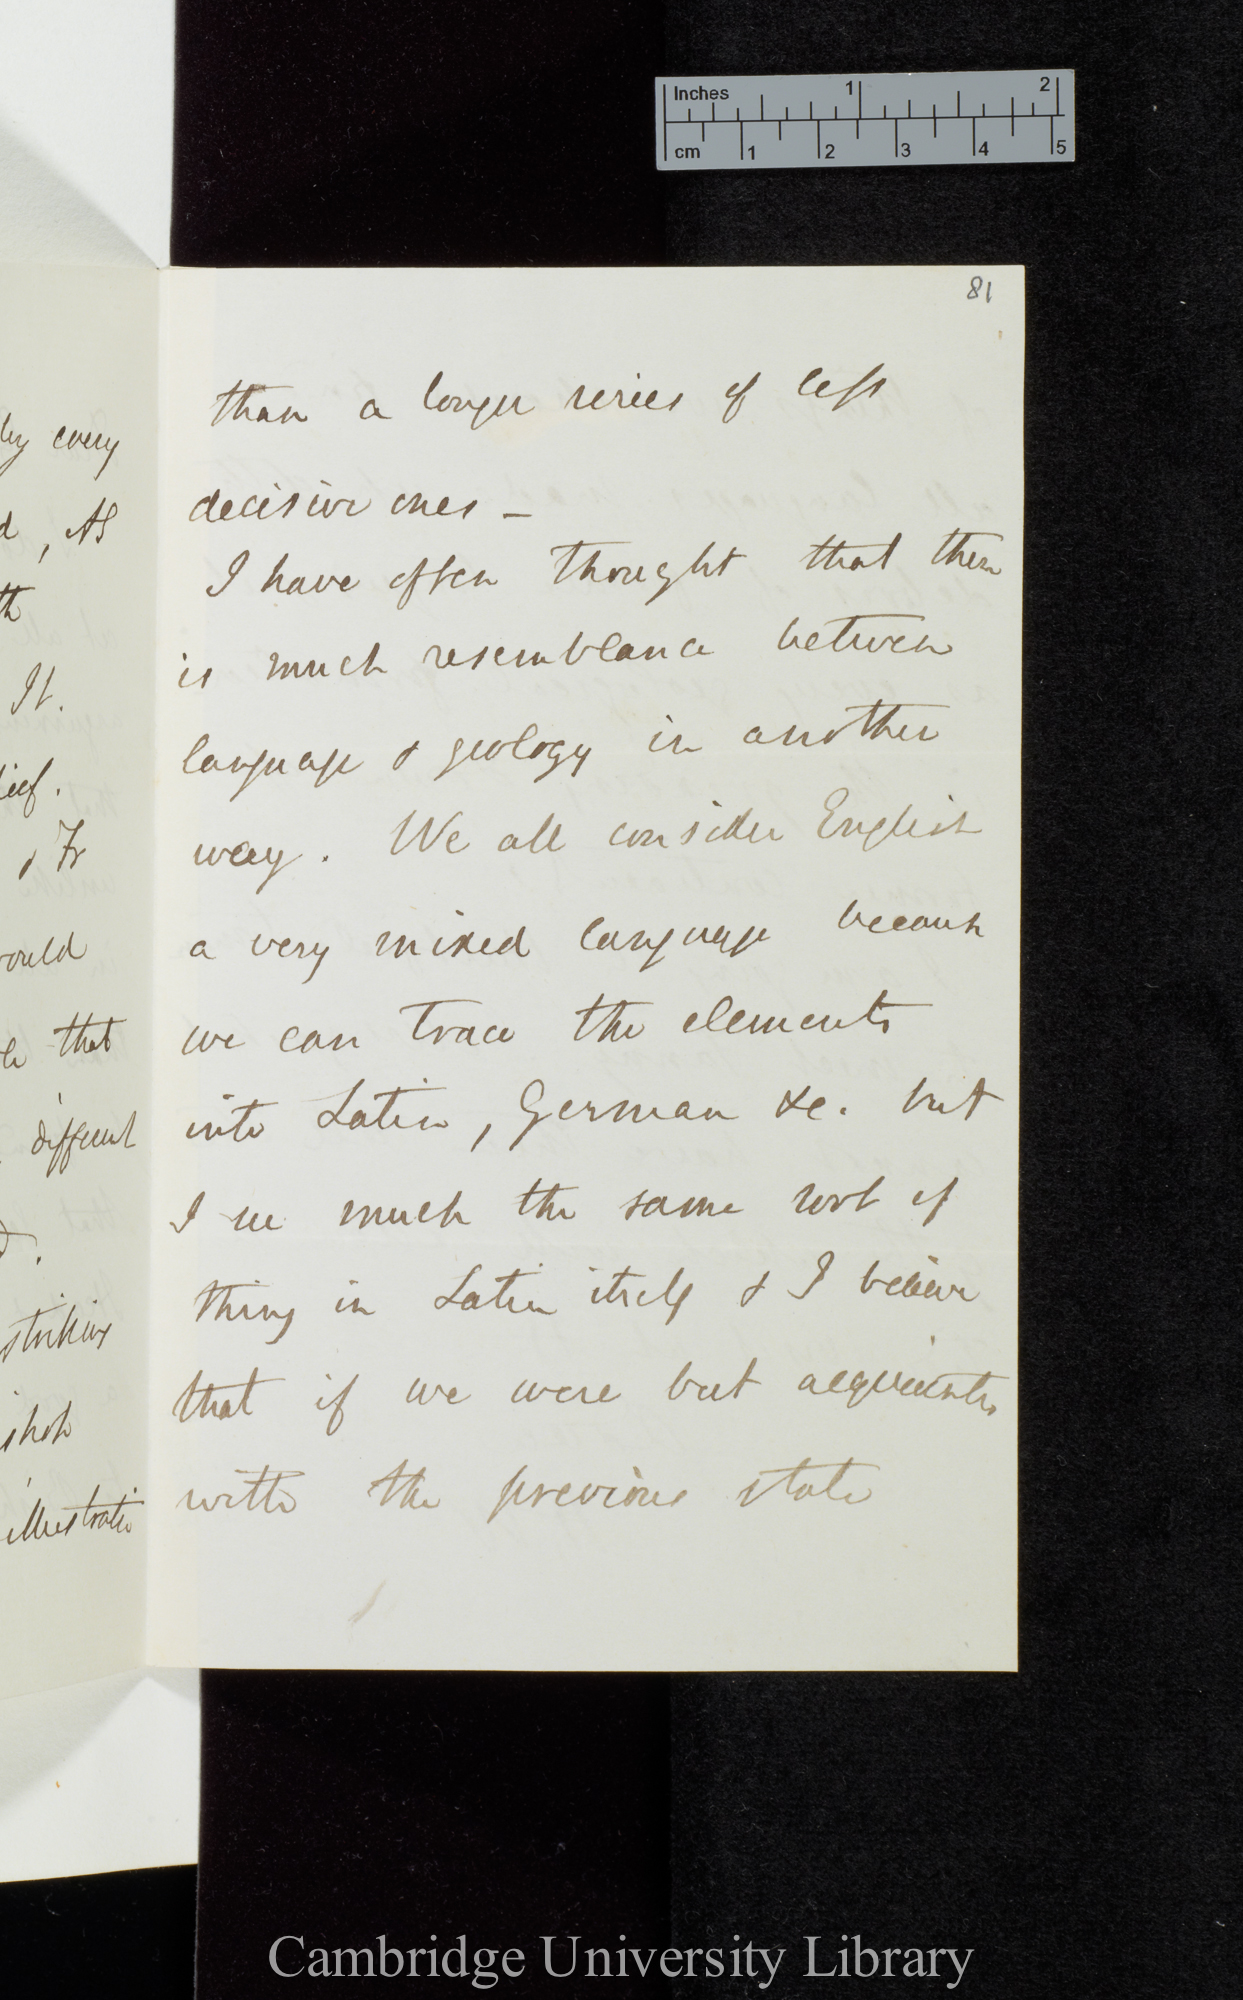 Inches 1 2
cm 1 2 3 4 5
81
by every
, As
It.
, Fr
that
different
striking
illustratio
than a longer series of less
decisive ones –
I have often thought that there
is much resemblance between
language & geology in another
way. We all consider English
a very mixed language because
we can trace the elements
into Latin, German &c. but
I see much the same sort of
thing in Latin itself & I believe
that if we were but acquainted
with the previous state
Cambridge University Library